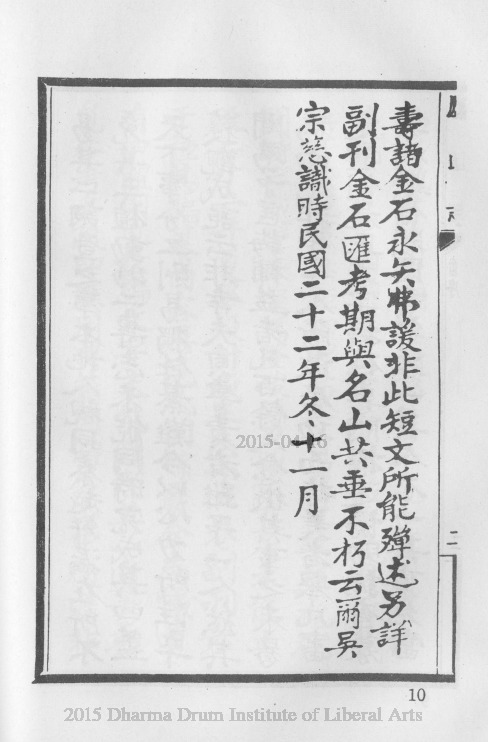 壽諸金石永矢弗諼非此短文所能殫述另詳
副刊金石匯考期與名山共垂不朽云爾吳
宗慈識時民國二十二年冬十一月
二
10
2015-04-16
2015 Dharma Drum Institute of Liberal Arts